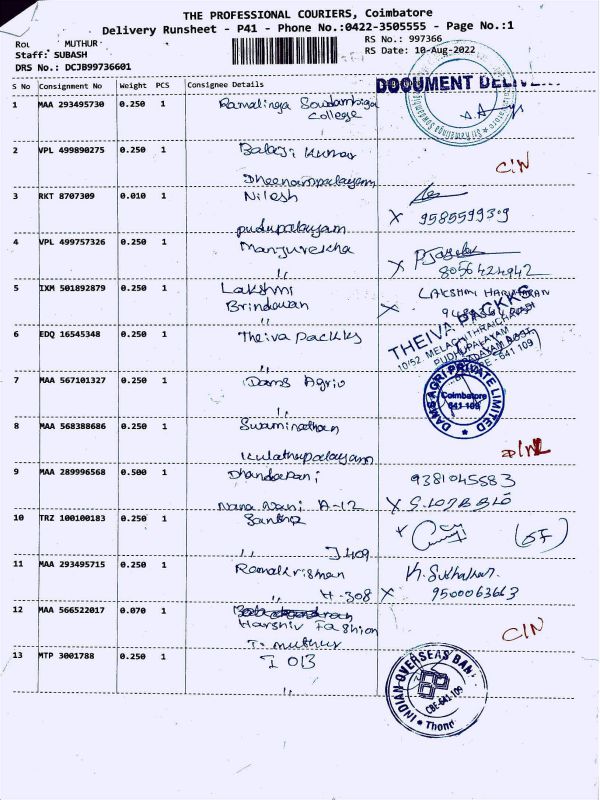 THE PROFESSIONAL COURIERS, Coimbatore
Delivery Runsheet - P41 - Phone No.:0422-3505555 - Page No.:1
MUTHUR RS No.: 997366
Staff: SUBASH RS Date: 10-Aug-2022
DRS No.: DCJB99736601
S No Consignment No Weight PCS Consignee Details
DOCUMENT
1 MAA 293495730 0.250 1 Ramalinga Sowdambiga
College
2 VPL 499890275 0.250 1 Balaji Kumar
CIN
Dheenampalayam
3 RKT 8707309 0.010 1 Nilesh
X 9585599309
pudupalayam
4 VPL 499757326 0.250 1 Manjurekha
X 8056424942
,,
5 IXM 501892879 0.250 1 Lakshmi
Brindavan
LAKSHMI HARIHARAN
X
,,
6 EDQ 16545348 0.250 1 Theiva Packks
THEIVA PACKKS
PUDHUPALAYAM
641 109
,,
7 MAA 567101327 0.250 1 Dams Agriv
DAMS AGRI PRIVATE LIMITED
Coimbatore
641 109
,,
8 MAA 568388686 0.250 1 Swaminathan
Kulathupalayam
9 MAA 289996568 0.500 1 Dhandapani
9381045583
Nana Nani A-12
X
10 TRZ 100100183 0.250 1 Santha
,, J 409
11 MAA 293495715 0.250 1 Ramakrishnan
H-308 X 9500063663
12 MAA 566522017 0.070 1
Harshiv Fashion
CIN
T. muthur
13 MTP 3001788 0.250 1 IOB
INDIAN OVERSEAS BANK
CBE-641 109
,,